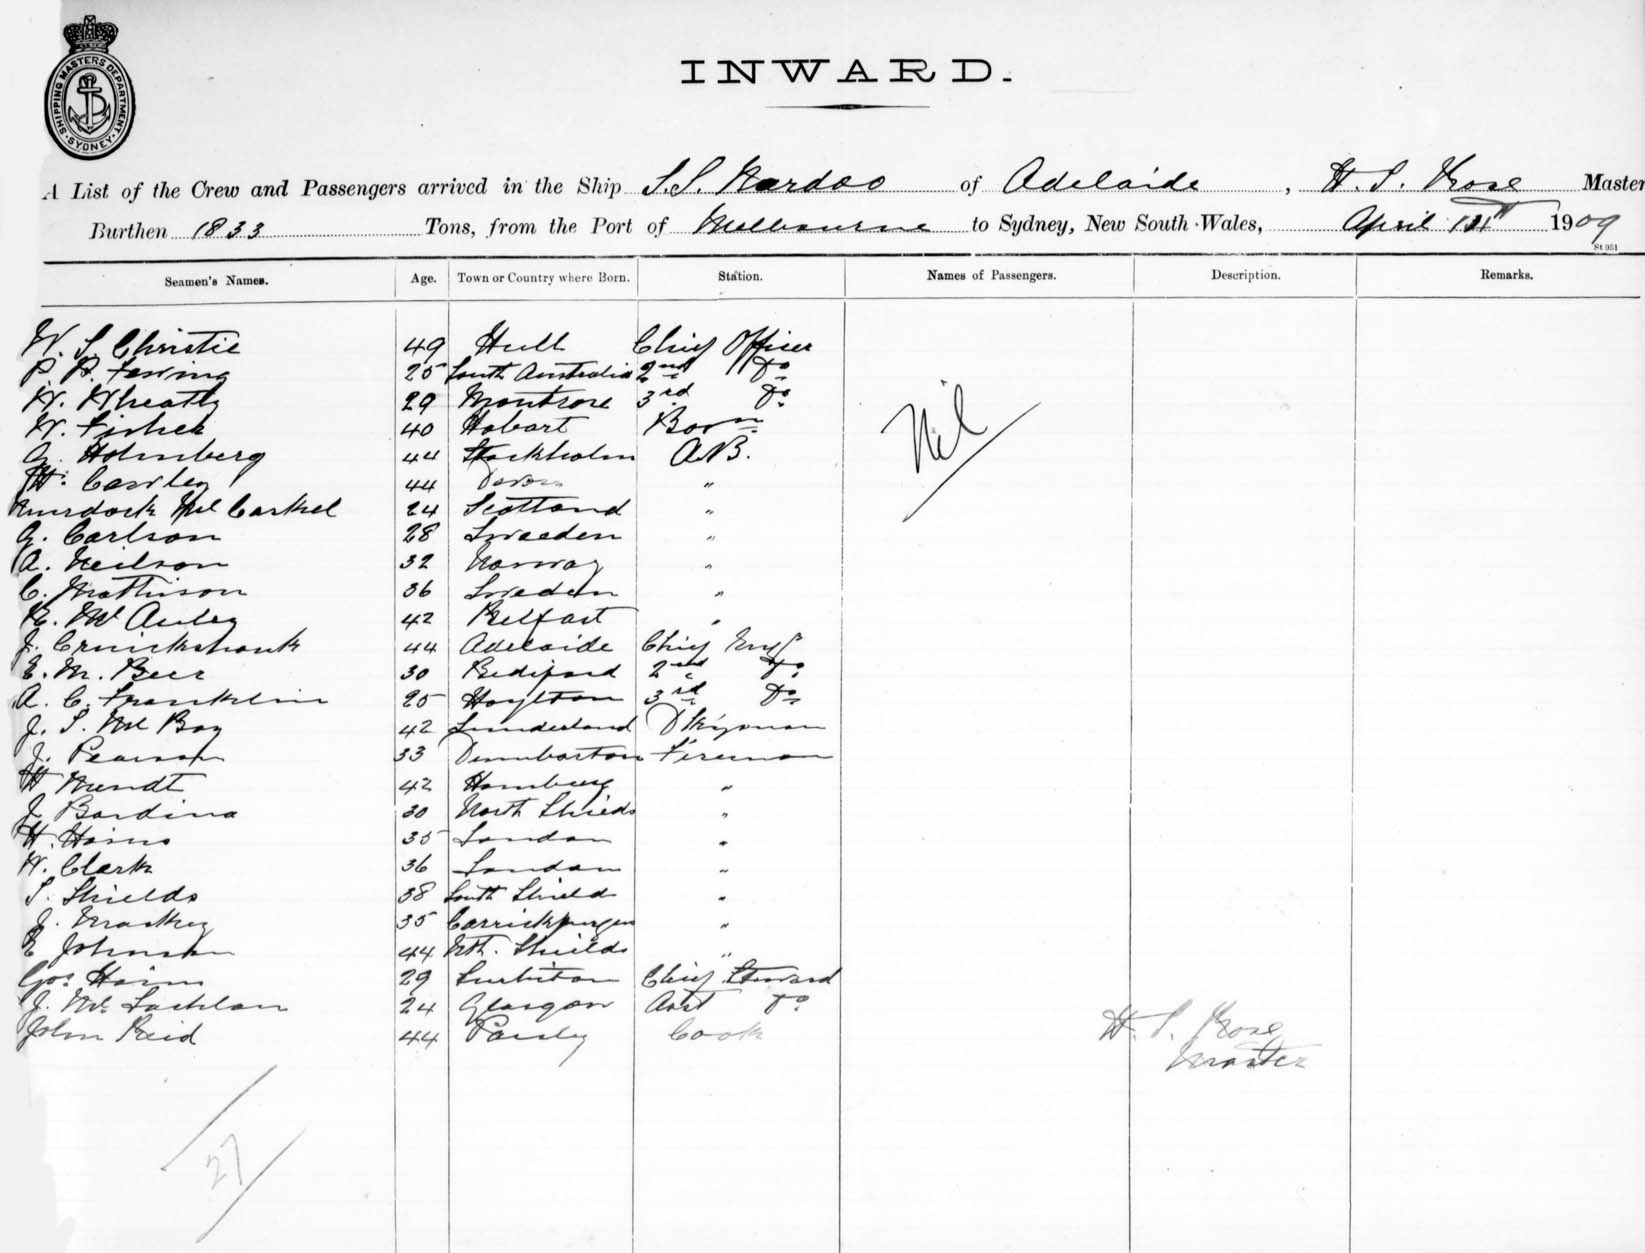 SHIPPING MASTERS DEPARTMENT · SYDNEY ·
INWARD.
A List of the Crew and Passengers arrived in the Ship S.S. Nardoo of Adelaide, H. S. Master
Burthen 1833 Tons, from the Port of Melbourne to Sydney, New South Wales, April 1909
St 951
Seamen's Names. Age. Town or Country where Born. Station. Names of Passengers. Description. Remarks.
W. S. Christie 49 Hull Chief Officer
P. P. 25 South Australia 2nd Do
H. Wheatly 29 Montrose 3rd Do.
W. Fisher 40 Hobart Bosn
Nil
G. Holmberg 44 Stockholm A.B.
H. Cawley 44 Devon "
Murdock Mc Caskel 24 Scotland "
G. Carlson 28 Sweeden "
A. Neilson 32 Norway "
C. Mathison 36 Sweden "
R. Mc Auley 42 Belfast "
J. Cruickshank 44 Adelaide Chief Engr
E. M. Beer 30 Bediford 2nd Do
A. C. Franklin 25 Hoylton 3rd Do
J. S. Mc Bay 42 Sunderland Dkyman
J. Pearson 33 Dumbarton Fireman
H Wendt 42 Hamburg "
J Bardina 30 North Shields "
H. Hains 35 London "
W. Clark 36 London "
S. Shields 38 South Shield "
J. Mackey 35 "
E Johnson 44 Nth. Shields "
Geo. Hains 29 Surbiton Chief Steward
J. Mc Lachlan 24 Glasgow Asst Do
John Reid 44 Paisley Cook
H. S.
Master
27